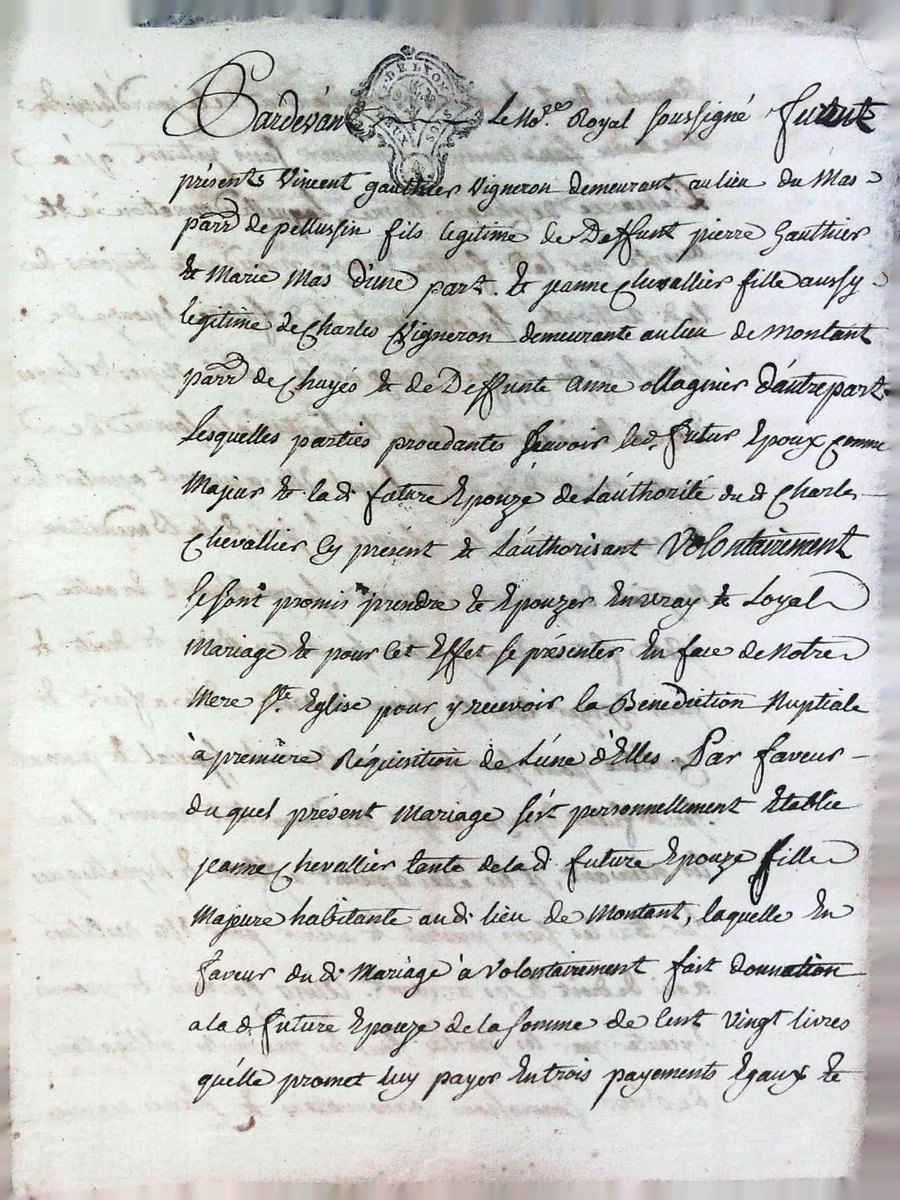 Pardevant le No.re Royal soussigné furent
DE LYON
présents Vincent gauthier Vigneron demeurant au lieu du Mas
parr de pellussin fils légitime de Deffunt pierre Gauthier
& Marie Mas d'une part. & jeanne Chevallier fille aussy
légitime de Charles Vigneron demeurante au lieu de Montant
parr de Chuyés & de Deffunte anne ollagnier d'autre part
Lesquelles parties procedantes scavoir led. futur Epoux comme
Majeur & la d. future Epouze de L'authorité du d. Charles
Chevallier Cy présent & L'authorisant Volontairement
se sont promis prendre & Epouzer En vray & Loyal
Mariage & pour Cet Effet se présenter En face de Notre
Mere Ste. Eglise pour y recevoir la Bénédiction Nuptiale
à première Réquisition de L'une d'Elles. Par faveur
du quel présent Mariage s'est personnellement Etablie
jeanne Chevallier tante de la d. future Epouze fille
Majeure habitante au d. lieu de Montant, laquelle En
faveur du d. Mariage à Volontairement fait donnation
a la d. future Epouze de la somme de Cent Vingt livres
qu'elle promet luy payer En trois payements Egaux &